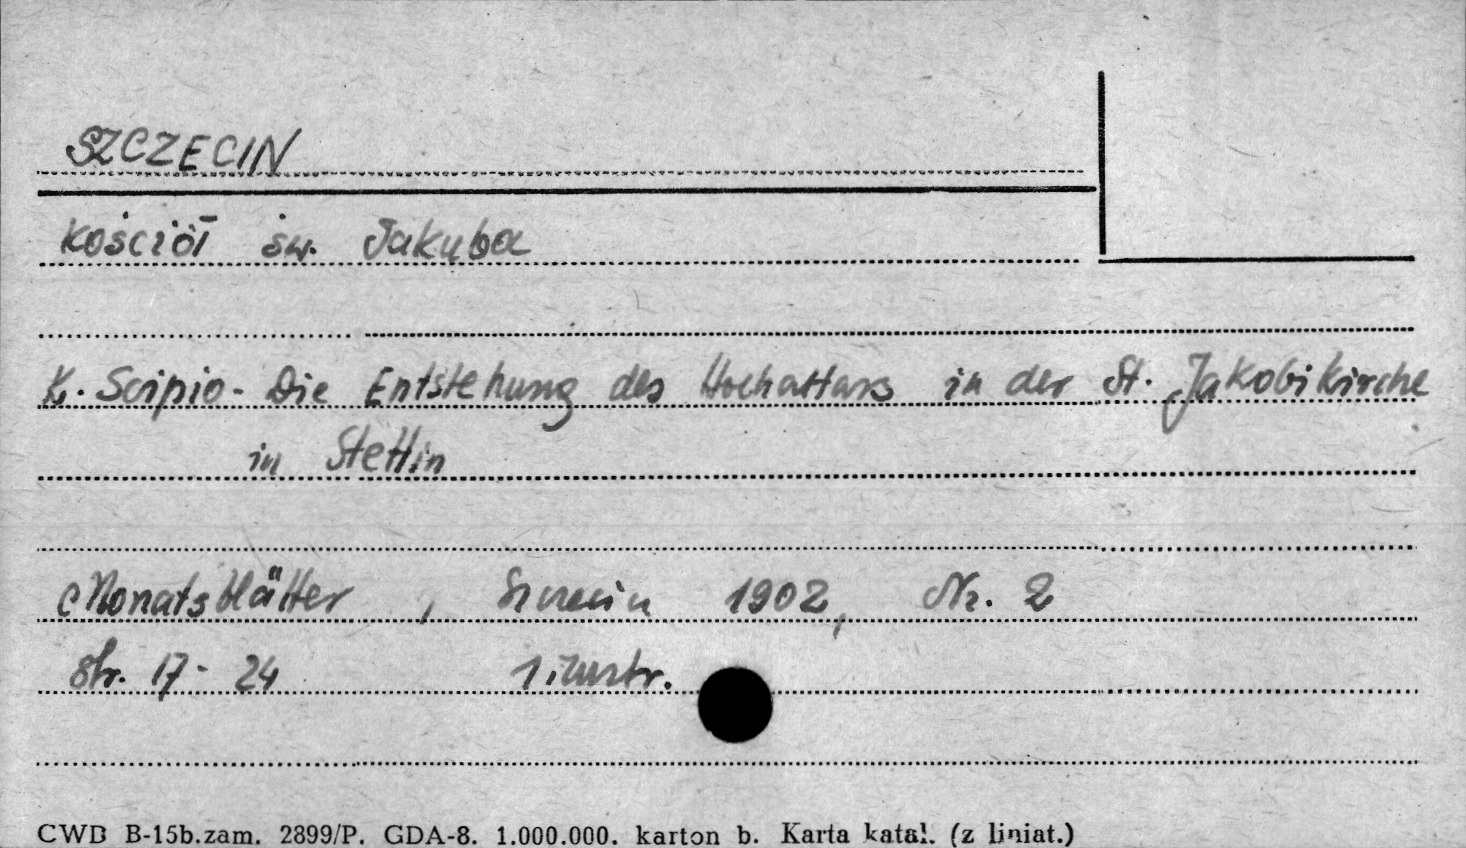 SZCZECIN
Kościół św. Jakuba
K. Scipio - Die Entstehung des Hochaltars in der St. Jakobikirche
in Stettin
Monatsblätter, 1902, Nr. 2
str. 17 - 24 1 ilustr.
CWD B-15b.zam. 2899/P. GDA-8. 1.000.000. karton b. Karta katal. (z liniat.)